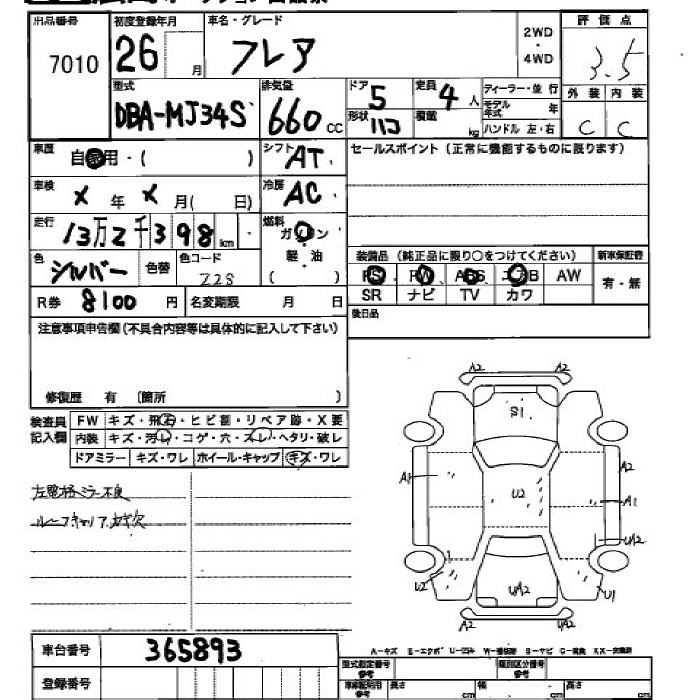 出品番号 初度登録年月 車名・グレード 2WD・4WD 評価点
7010 26 月 フレア 3.5
型式 排気量 ドア 定員 ディーラー・並行 外装 内装
DBA-MJ34S 660 cc 5 4人 モデル年式 年 C C
形状 ハコ 積載 kg ハンドル 左・右
車歴 自家用・( ) シフト AT セールスポイント(正常に機能するものに限ります)
車検 X年X月( 日) 冷房 AC
走行 13万2千398km 燃料 ガソリン
軽・油
( )
色 シルバー 色替 色コード Z2S
装備品 (純正品に限り○をつけてください) 新車保証書
PS PW ABS エアB AW 有・無
R券 8100円 名変期限 月 日 SR ナビ TV カワ
注意事項申告欄(不具合内容等は具体的に記入して下さい) 後日品
修復歴 有 〔箇所 〕
検査員記入欄 FW キズ・飛石・ヒビ割・リペア跡・X要
内装 キズ・汚レ・コゲ・穴・スレ・ヘタリ・破レ
ドアミラー キズ・ワレ ホイール・キャップ キズ・ワレ
左電格ミラー不良
ルーフキャリア
A2 A2
S1
A1 A2
U2 A1
UA2
U2 UA2 U1
A2 UA2
車台番号 365893
A-キズ E-エクボ U-凹み W-補修跡 S-サビ C-腐食 XX-交換済
登録番号 型式指定番号 参考 類別区分番号 参考
車庫証明用 参考 長さ cm 幅 cm 高さ cm